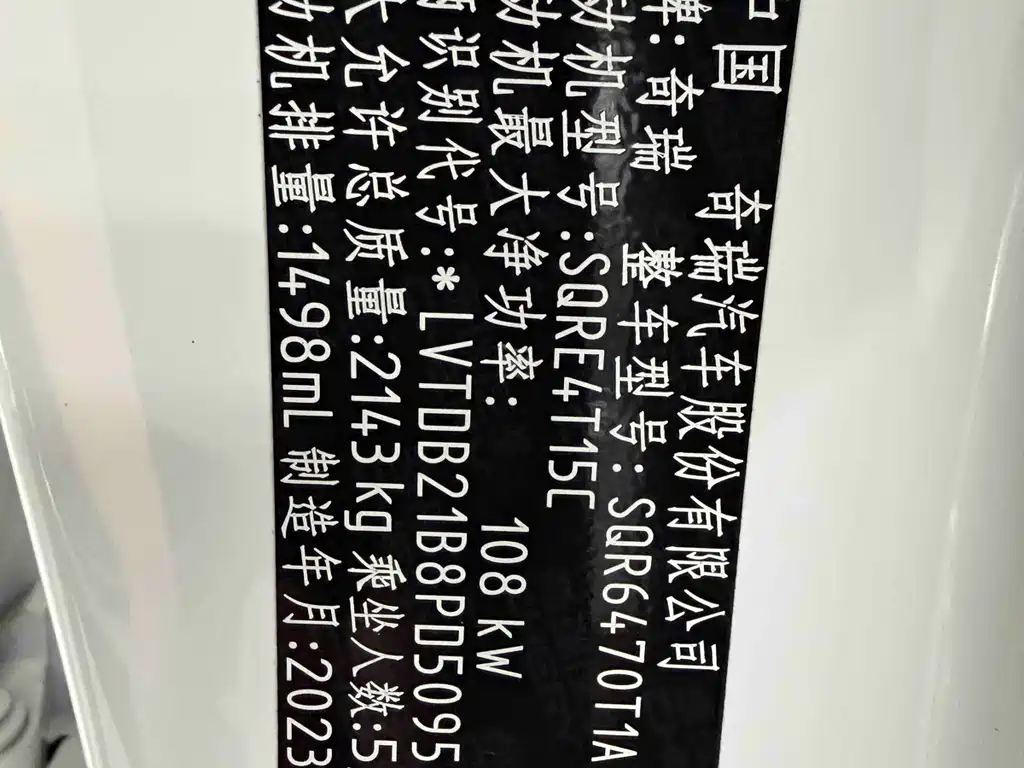 中国 奇瑞汽车股份有限公司
牌:奇瑞 整车型号:SQR6470T1A
动机型号:SQRE4T15C
动机最大净功率: 108kW
识别代号:*LVTDB21B8PD5095
大允许总质量:2143kg 乘坐人数:5
动机排量:1498mL 制造年月:2023